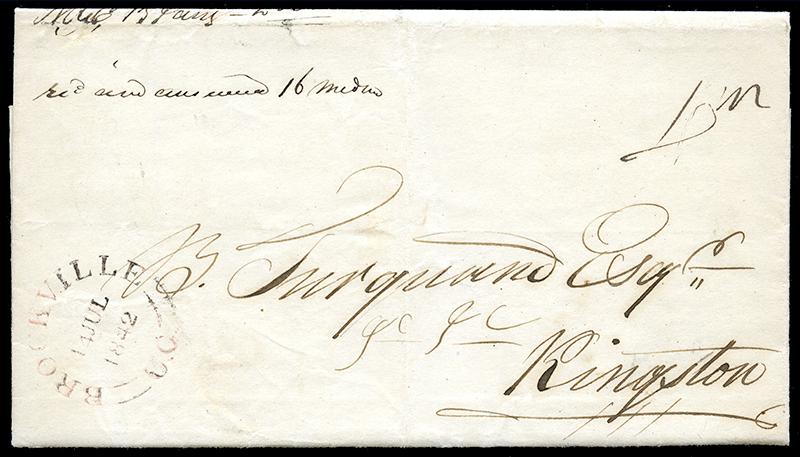 recd and answered 16
B. Turquand Esqr
&c &c
Kingston
BROCKVILLE U.C.
14 JUL
1842